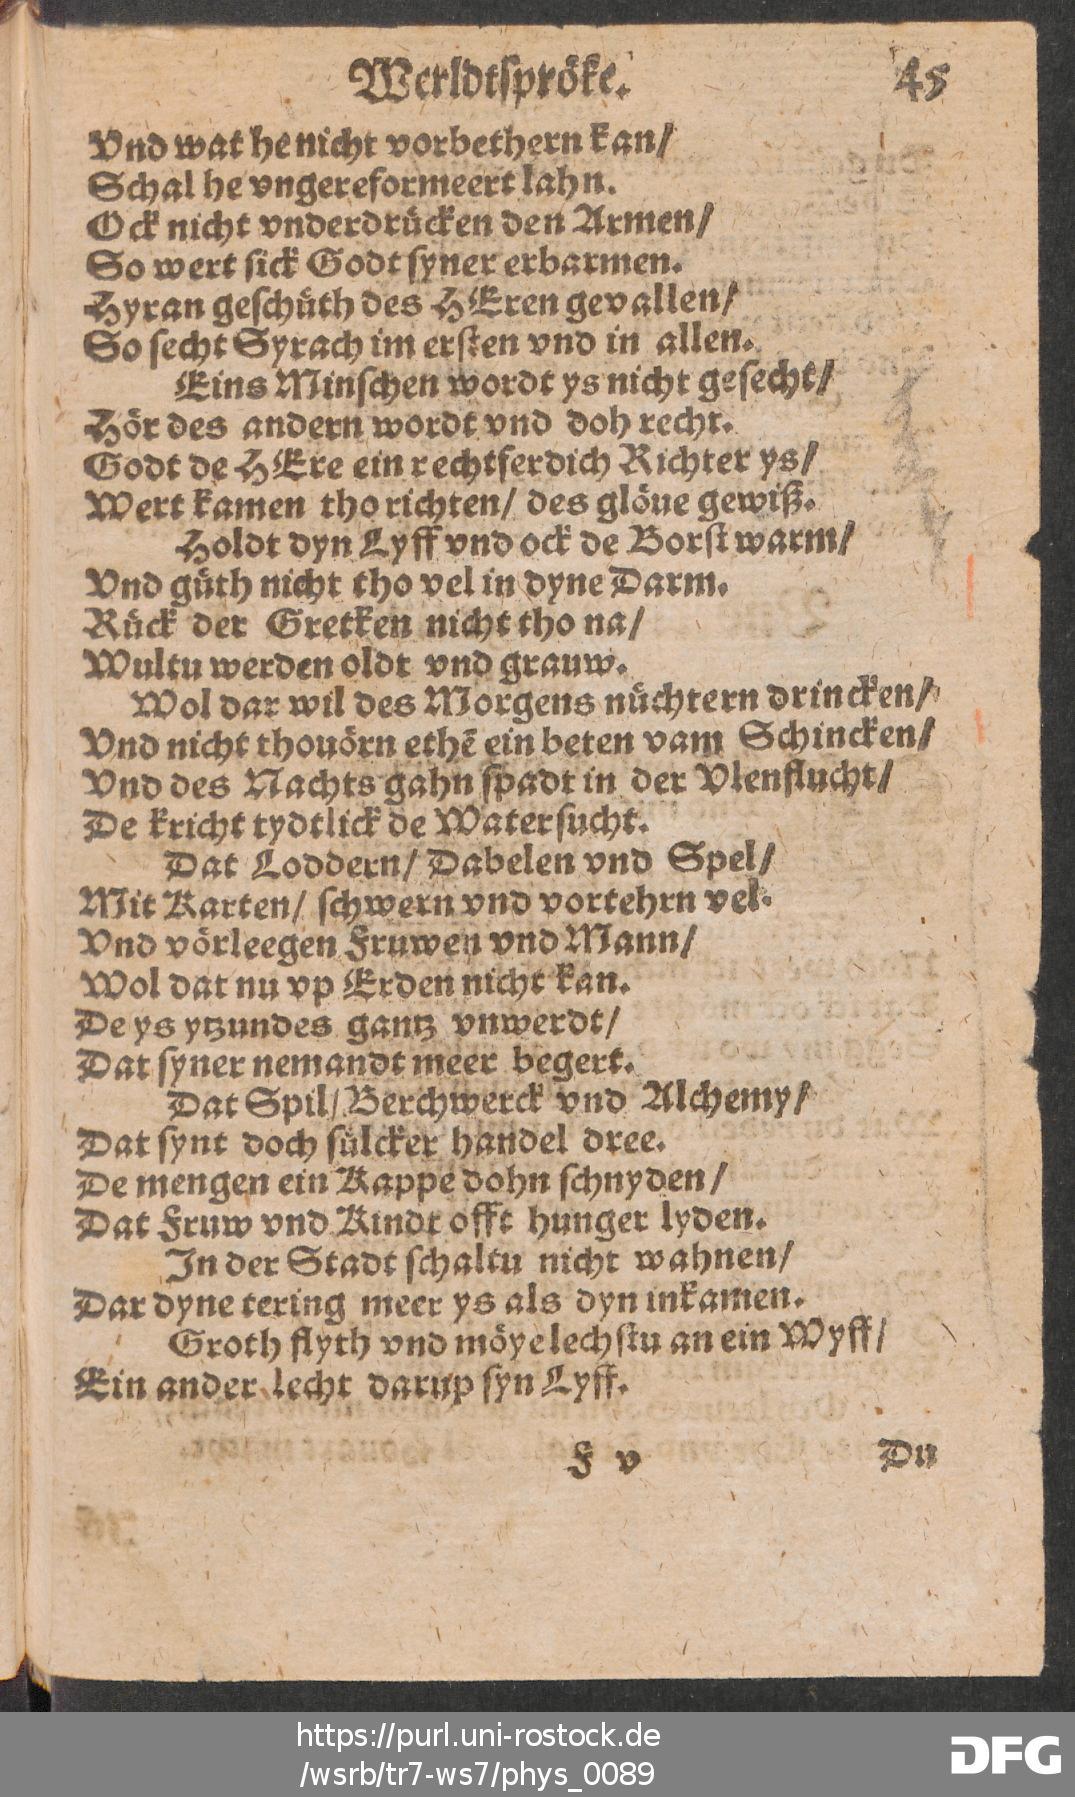 Werldtspröke. 45
Vnd wat he nicht vorbethern kan/
Schal he vngereformeert lahn.
Ock nicht vnderdrücken den Armen/
So wert sick Godt syner erbarmen.
Hyran geschüth des HEren gevallen/
So secht Syrach im ersten vnd in allen.
Eins Minschen wordt ys nicht gesecht/
Hör des andern wordt vnd doh recht.
Godt de HEre ein rechtferdich Richter ys/
Wert kamen tho richten/ des glöue gewiß.
Holdt dyn Lyff vnd ock de Borst warm/
Vnd güth nicht tho vel in dyne Darm.
Rück der Gretken nicht tho na/
Wultu werden oldt vnd grauw.
Wol dar wil des Morgens nüchtern drincken/
Vnd nicht thouörn ethē ein beten vam Schincken/
Vnd des Nachts gahn spadt in der Vlenflucht/
De kricht tydtlick de Watersucht.
Dat Loddern/ Dabelen vnd Spel/
Mit Karten/ schwern vnd vortehrn vel.
Vnd vörleegen Fruwen vnd Mann/
Wol dat nu vp Erden nicht kan.
De ys ytzundes gantz vnwerdt/
Dat syner nemandt meer begert.
Dat Spil/ Berchwerck vnd Alchemy/
Dat synt doch sülcker handel dree.
De mengen ein Kappe dohn schnyden/
Dat Fruw vnd Kindt offt hunger lyden.
In der Stadt schaltu nicht wahnen/
Dar dyne tering meer ys als dyn inkamen.
Groth flyth vnd möye lechstu an ein Wyff/
Ein ander lecht darup syn Lyff.
F v Du
https://purl.uni-rostock.de
/wsrb/tr7-ws7/phys_0089
DFG